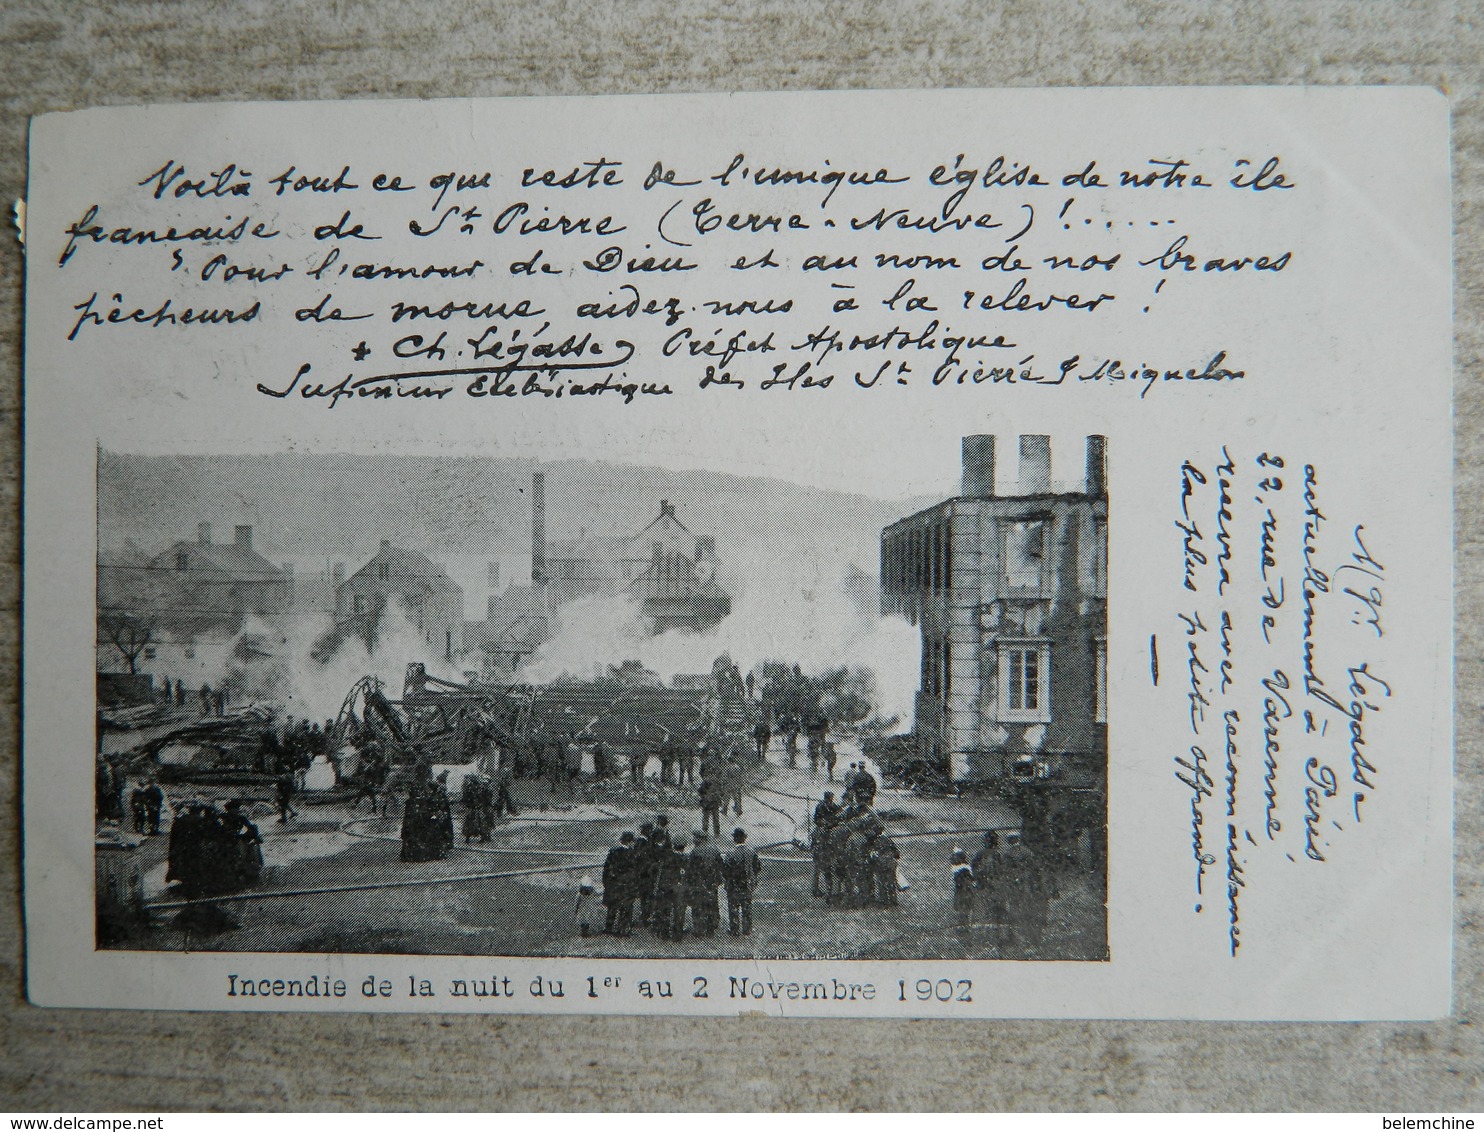 Voilà tout ce qui reste de l'unique église de nôtre île
française de St Pierre (Terre-Neuve) !.....
Pour l'amour de Dieu et au nom de nos braves
pêcheurs de morue, aidez-nous à la relever !
+ Ch. Légasse, Préfet Apostolique
Supérieur Ecclésiastique des Iles St Pierre & Miquelon
Mgr. Légasse
actuellement à Paris,
22, rue de Varenne
recevra avec reconnaissance
la plus petite offrande.
Incendie de la nuit du 1er au 2 Novembre 1902
delcampe.net
belemchine